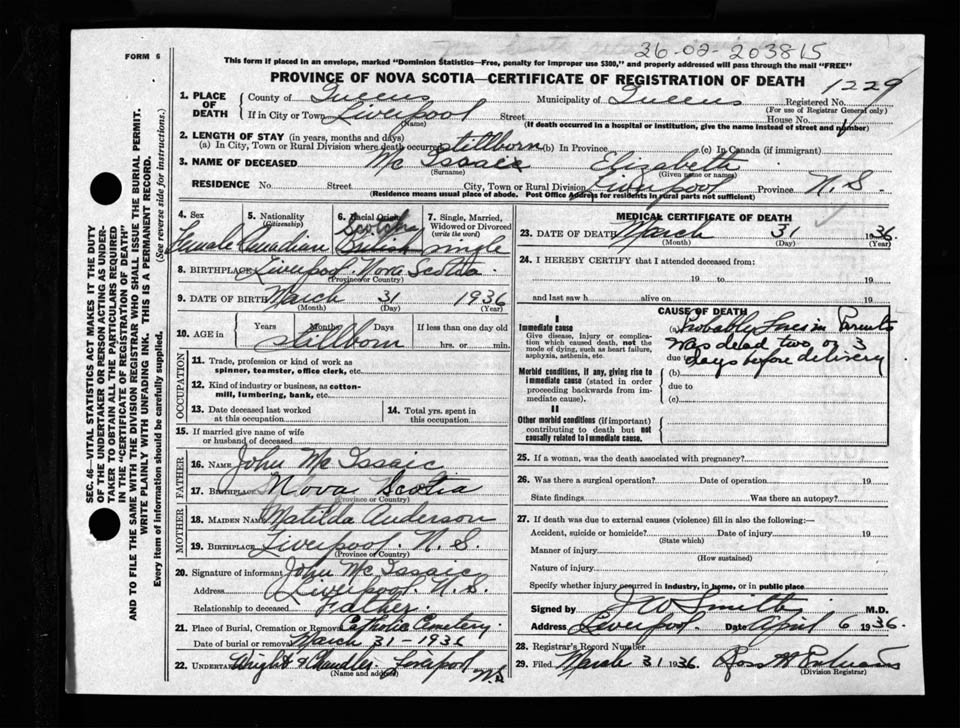 36-02-203815
FORM 6
This form if placed in an envelope, marked "Dominion Statistics—Free, penalty for improper use $300," and properly addressed will pass through the mail "FREE"
PROVINCE OF NOVA SCOTIA—CERTIFICATE OF REGISTRATION OF DEATH
1229
1. PLACE OF DEATH
County of Queens Municipality of Queens Registered No.
(For use of Registrar General only)
If in City or Town Liverpool Street House No.
(Name) (If death occurred in a hospital or institution, give the name instead of street and number)
2. LENGTH OF STAY (in years, months and days)
(a) In City, Town or Rural Division where death occurred stillborn (b) In Province (c) In Canada (if immigrant)
3. NAME OF DECEASED Mc Issaic Elizabeth
(Surname) (Given name or names)
RESIDENCE No. Street City, Town or Rural Division Liverpool Province N.S.
(Residence means usual place of abode. Post Office Address for residents in rural parts not sufficient)
4. Sex 5. Nationality 6. Racial Origin 7. Single, Married,
(Citizenship) Scotch Widowed or Divorced
(write the word)
Female Canadian British single
8. BIRTHPLACE Liverpool. Nova Scotia.
(Province or Country)
9. DATE OF BIRTH March 31 1936
(Month) (Day) (Year)
10. AGE in Years Months Days If less than one day old
stillborn hrs. or min.
OCCUPATION
11. Trade, profession or kind of work as
spinner, teamster, office clerk, etc.
12. Kind of industry or business, as cotton-
mill, lumbering, bank, etc.
13. Date deceased last worked
at this occupation
14. Total yrs. spent in
this occupation
15. If married give name of wife
or husband of deceased
FATHER
16. NAME John Mc Issaic
17. BIRTHPLACE Nova Scotia
(Province or Country)
MOTHER
18. MAIDEN NAME Matilda Anderson
19. BIRTHPLACE Liverpool. N.S.
(Province or Country)
20. Signature of informant John Mc Issaic
Address Liverpool. N.S.
Relationship to deceased Father.
21. Place of Burial, Cremation or Removal Catholic Cemetery.
Date of burial or removal March 31-1936
22. UNDERTAKER Wright & Chandler. Liverpool
(Name and address) N.S.
MEDICAL CERTIFICATE OF DEATH
23. DATE OF DEATH March 31 1936
(Month) (Day) (Year)
24. I HEREBY CERTIFY that I attended deceased from:
19 to 19
and last saw h alive on 19
CAUSE OF DEATH
I
Immediate cause
Give disease, injury or complica-
tion which caused death, not the
mode of dying, such as heart failure,
asphyxia, asthenia, etc.
(a) Probably Lues in Parents
Was dead two or 3
due to days before delivery
Morbid conditions, if any, giving rise to
immediate cause (stated in order
proceeding backwards from im-
mediate cause).
(b)
due to
(c)
II
Other morbid conditions (if important)
contributing to death but not
causally related to immediate cause.
25. If a woman, was the death associated with pregnancy?
26. Was there a surgical operation? Date of operation 19
State findings Was there an autopsy?
27. If death was due to external causes (violence) fill in also the following:—
Accident, suicide or homicide? Date of injury 19
(State which)
Manner of injury
(How sustained)
Nature of injury
Specify whether injury occurred in industry, in home, or in public place
Signed by J W Smith M.D.
Address Liverpool. Date April 6 1936.
28. Registrar's Record Number
29. Filed March 31 1936. Ross
(Division Registrar)
SEC. 46—VITAL STATISTICS ACT MAKES IT THE DUTY
OF THE UNDERTAKER OR PERSON ACTING AS UNDER-
TAKER TO OBTAIN ALL THE PARTICULARS REQUIRED
IN THE "CERTIFICATE OF REGISTRATION OF DEATH"
AND TO FILE THE SAME WITH THE DIVISION REGISTRAR WHO SHALL ISSUE THE BURIAL PERMIT.
WRITE PLAINLY WITH UNFADING INK. THIS IS A PERMANENT RECORD.
Every item of information should be carefully supplied. (See reverse side for instructions.)